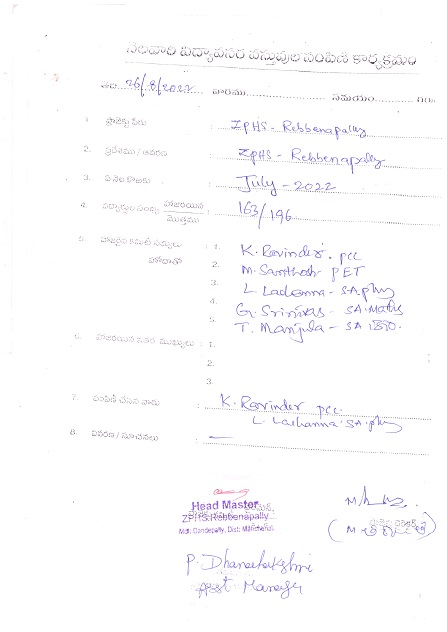 నెలవారి విద్యావసర వస్తువుల పంపిణి కార్యక్రమం
తేది 26/8/2022 వారము సమయం
1. ప్రాజెక్టు పేరు : ZPHS - Rebbenapally
2. ప్రదేశము / ఆవరణ : ZPHS - Rebbenapally
3. ఏ నెల కొఱకు : July - 2022
4. విద్యార్థుల సంఖ్య హాజరయిన / మొత్తము : 163/196
5. హాజరైన కమిటీ సభ్యులు : 1. K. Ravinder. PCC
హోదాతో 2. M. Santhosh PET
3. L. Lachanna - S.A. phy
4. G. Srinivas - SA. Maths
5. T. Manjula - SA BIO.
6. హాజరయిన ఇతర ముఖ్యులు : 1.
2.
3.
7. పంపిణి చేసిన వారు : K. Ravinder PCC.
L. Lachanna. S.A. phy
8. వివరణ / సూచనలు : —
Head Master
ZPHS. Rebbenapally
Mdl. Dandepally, Dist: Mancherial.
P. Dhanalakshmi
Asst Manager